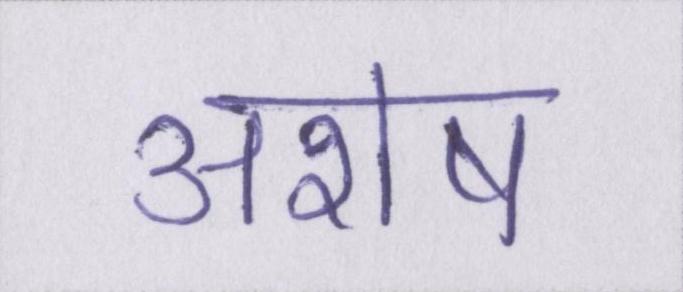 अशेष